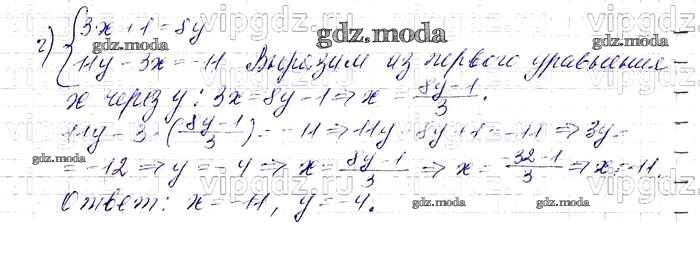 г) { 3x + 1 = 8y
{ 11y - 3x = -11 Выразим из первого уравнения
x через y: 3x = 8y - 1 ⇒ x = (8y - 1)/3.
11y - 3 · ((8y - 1)/3) = -11 ⇒ 11y - 8y + 1 = -11 ⇒ 3y =
= -12 ⇒ y = -4 ⇒ x = (8y - 1)/3 ⇒ x = (-32 - 1)/3 ⇒ x = -11.
Ответ: x = -11, y = -4.
gdz.moda
gdz.moda
gdz.moda
gdz.moda
gdz.moda
gdz.moda
gdz.moda
vipgdz.ru
vipgdz.ru
vipgdz.ru